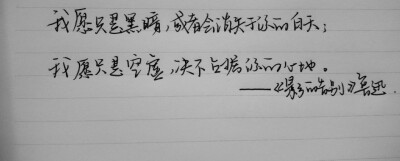 我愿只是黑暗，或者会消失于你的白天；
我愿只是空虚，决不占据你的心地。
——《影的告别》鲁迅.